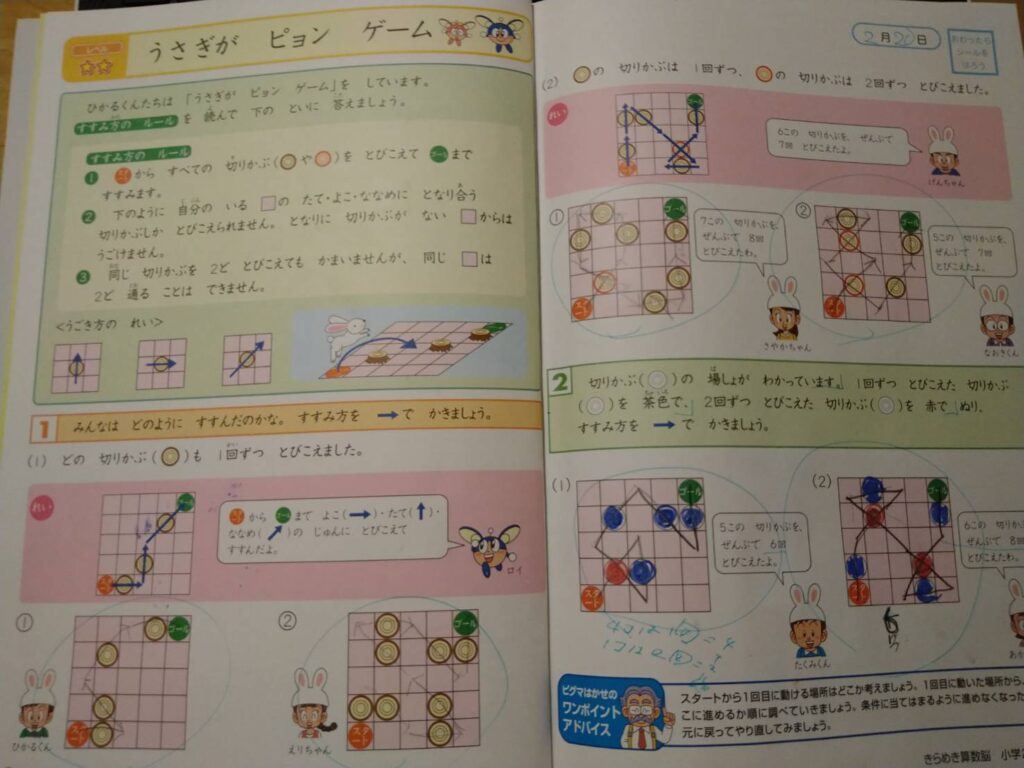 レベル
うさぎが ピョン ゲーム
ひかるくんたちは「うさぎが ピョン ゲーム」を しています。
すすみ方の ルール を 読んで 下の といに 答えましょう。
すすみ方の ルール
❶ スタートから すべての 切りかぶ(や)を とびこえて ゴールまで
すすみます。
❷ 下のように 自分の いる の たて・よこ・ななめに となり合う
切りかぶしか とびこえられません。となりに 切りかぶが ない からは
うごけません。
❸ 同じ 切りかぶを 2ど とびこえても かまいませんが、同じ は
2ど 通る ことは できません。
<うごき方の れい>
1 みんなは どのように すすんだのかな。すすみ方を → で かきましょう。
(1) どの 切りかぶ()も 1回ずつ とびこえました。
れい
ゴール
スタート
スタートから ゴールまで よこ(→)・たて(↑)・
ななめ(↗)の じゅんに とびこえて
すすんだよ。
ロイ
①
ゴール
スタート
ひかるくん
②
ゴール
スタート
えりちゃん
2月20日
おわったら
シールを
はろう
(2) の 切りかぶは 1回ずつ、の 切りかぶは 2回ずつ とびこえました。
れい
ゴール
6この 切りかぶを、ぜんぶで
7回 とびこえたよ。
げんちゃん
①
ゴール
スタート
7この 切りかぶを、
ぜんぶで 8回
とびこえたわ。
さやかちゃん
②
ゴール
スタート
5この 切りかぶを、
ぜんぶで 7回
とびこえたよ。
なおきくん
2 切りかぶ()の 場しょが わかっています。1回ずつ とびこえた 切りかぶ
()を 茶色で、2回ずつ とびこえた 切りかぶ()を 赤で ぬり、
すすみ方を → で かきましょう。
(1)
ゴール
スタート
5この 切りかぶを、
ぜんぶで 6回
とびこえたよ。
たくみくん
(2)
ゴール
スタート
6この 切りかぶを、
ぜんぶで 8回
とびこえたわ。
ピグマはかせの
ワンポイント
アドバイス
スタートから1回目に動ける場所はどこか考えましょう。1回目に動いた場所から、
こに進めるか順に調べていきましょう。条件に当てはまるように進めなくなった
元に戻ってやり直してみましょう。
きらめき算数脳 小学